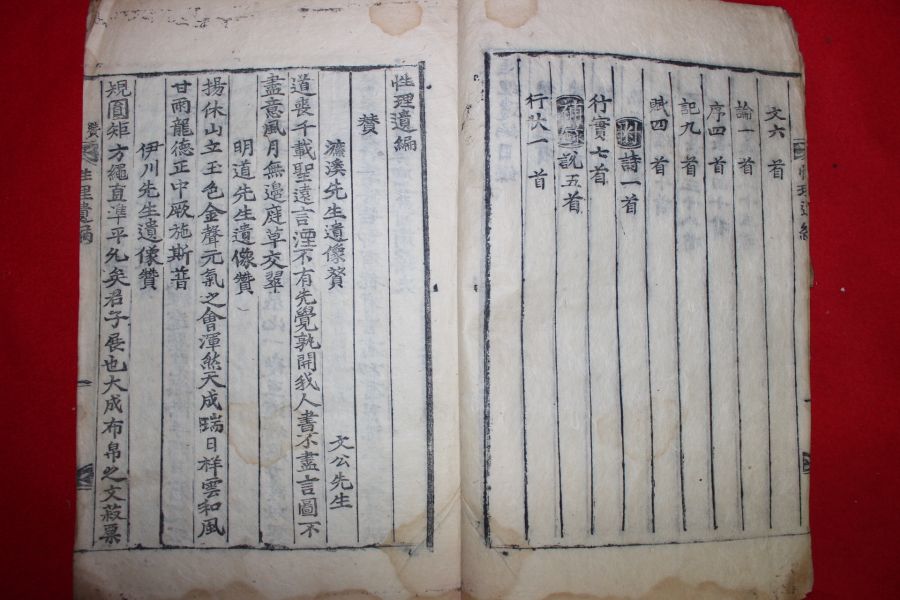 文六首
論一首
序四首
記九首
賦四首
附詩一首
行實七首
補遺說五首
行狀一首
性理遺編
贊
濂溪先生遺像贊 文公先生
道喪千載聖遠言湮不有先覺孰開我人書不盡言圖不
盡意風月無邊庭草交翠
明道先生遺像贊
揚休山立玉色金聲元氣之會渾然天成瑞日祥雲和風
甘雨龍德正中厥施斯普
伊川先生遺像贊
規圓矩方繩直準平允矣君子展也大成布帛之文菽粟
贊 性理遺編